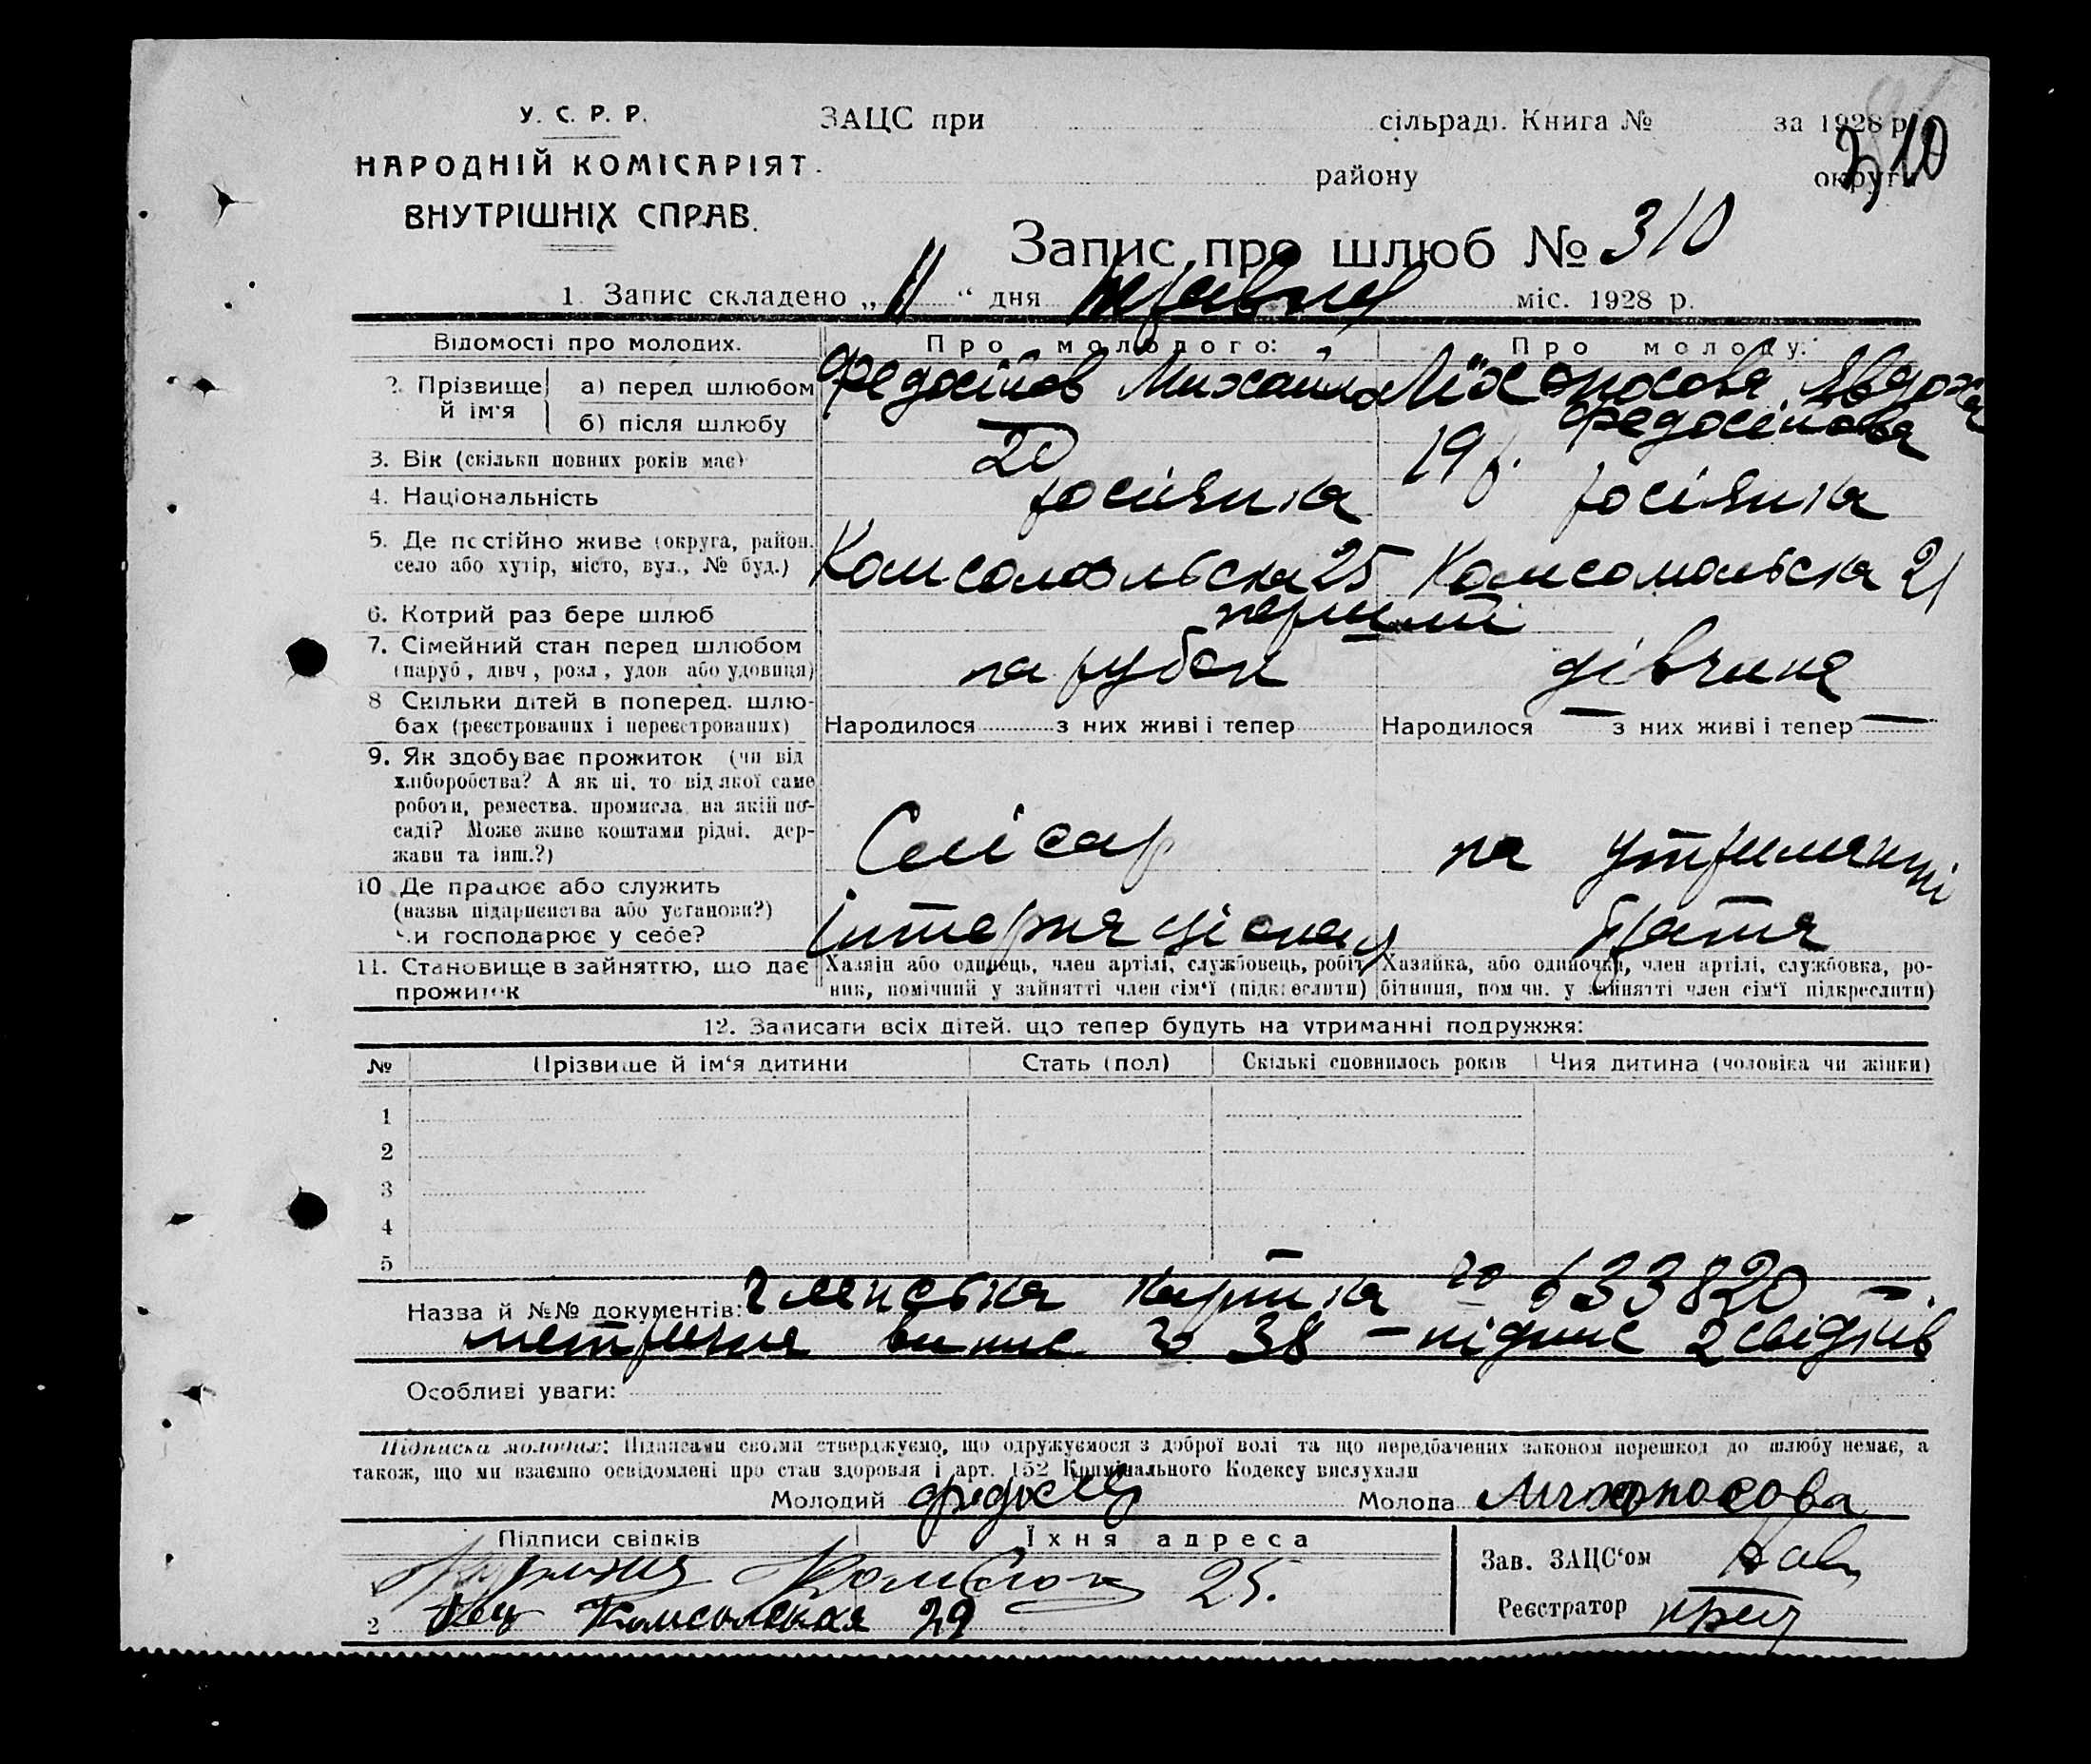 У. С. Р. Р.
НАРОДНІЙ КОМІСАРІЯТ
ВНУТРІШНІХ СПРАВ.
ЗАЦС при сільраді. Книга № за 1928 р.
району округи
310
Запис про шлюб № 310
1. Запис складено „11“ дня травня міс. 1928 р.
Відомості про молодих. Про молодого: Про молоду:
2. Прізвище й ім'я а) перед шлюбом Федосіїв Михайло
б) після шлюбу
3. Вік (скільки повних років має) 20 19 р.
4. Національність росіянка росіянка
5. Де постійно живе (округа, район, село або хутір, місто, вул., № буд.) Комсомольська 25 Комсомольска 21
6. Котрий раз бере шлюб перший
7. Сімейний стан перед шлюбом (паруб, дівч, розл, удов або удовиця) парубок дівчина
8 Скільки дітей в поперед. шлюбах (реєстрованих і нереєстрованих) Народилося з них живі і тепер Народилося — з них живі і тепер —
9. Як здобуває прожиток (чи від хліборобства? А як ні, то від якої саме роботи, ремества, промисла, на якій посаді? Може живе коштами рідні, держави та інш.?) Слісар на утриманні
10 Де працює або служить (назва підприємства або установи?) Чи господарює у себе? Інтернаціонал брата
11. Становище в зайняттю, що дає прожиток Хазяїн або одинець, член артілі, службовець, робітник, помічний у зайнятті член сім'ї (підкреслити) Хазяйка, або одиночка, член артілі, службовка, робітниця, пом чн. у зайнятті член сім'ї підкреслити)
12. Записати всіх дітей, що тепер будуть на утриманні подружжя:
№ Прізвище й ім'я дитини Стать (пол) Скількі сповнилось років Чия дитина (чоловіка чи жінки)
1
2
3
4
5
Назва й №№ документів: членська картка № 633820 —.
метрична випис № 38 — підпис 2 свідків
Особливі уваги:
Підписка молодих: Підписами своїми стверджуємо, що одружуємося з доброї волі та що передбачених законом перешкод до шлюбу немає, а
також, що ми взаємно освідомлені про стан здоровля і арт. 152 Кримінального Кодексу вислухали
Молодий Молода
Підписи свідків Їхня адреса
25.
2 29
Зав. ЗАЦС'ом
Реєстратор